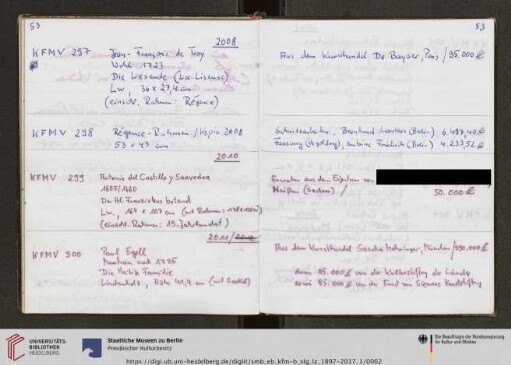 53
53
2008
KFMV 297 Jean-François de Troy
Wohl 1723
Die Lesende (La Liseuse)
Lw, 36 x 27,4 cm
(einschl. Rahmen: Régence)
Aus dem Kunsthandel De Bayser, Paris / 95.000 €
KFMV 298 Régence-Rahmen / Kopie 2008
53 x 43 cm
Bernhard (Berlin) 6.497,40 €
Fassung (Berlin) 4.237,52 €
2010
KFMV 299 Antonio del Castillo y Saavedra
1655/1660
Der Hl. Franziskus betend
Lw., 164 x 107 cm (mit Rahmen:
(einschl. Rahmen: 19. Jahrhundert)
Erworben aus dem Eigentum von
Meißen (Sachsen) / 50.000 €
2011
KFMV 300 Paul Egell
Mannheim
Die Heilige Familie
Lindenholz, Höhe 41,4 cm (mit Sockel)
Aus dem Kunsthandel Sascha Mehringer, München /
davon 85.000 € von der Kulturstiftung der Länder
sowie 85.000 € von der Ernst von Siemens Kunststiftung
UNIVERSITÄTS-
BIBLIOTHEK
HEIDELBERG
Staatliche Museen zu Berlin
Preußischer Kulturbesitz
Die Beauftragte der Bundesregierung
für Kultur und Medien
https://digi.ub.uni-heidelberg.de/diglit/smb_eb_kfm-b_slg_lz_1897-2017_1/0062